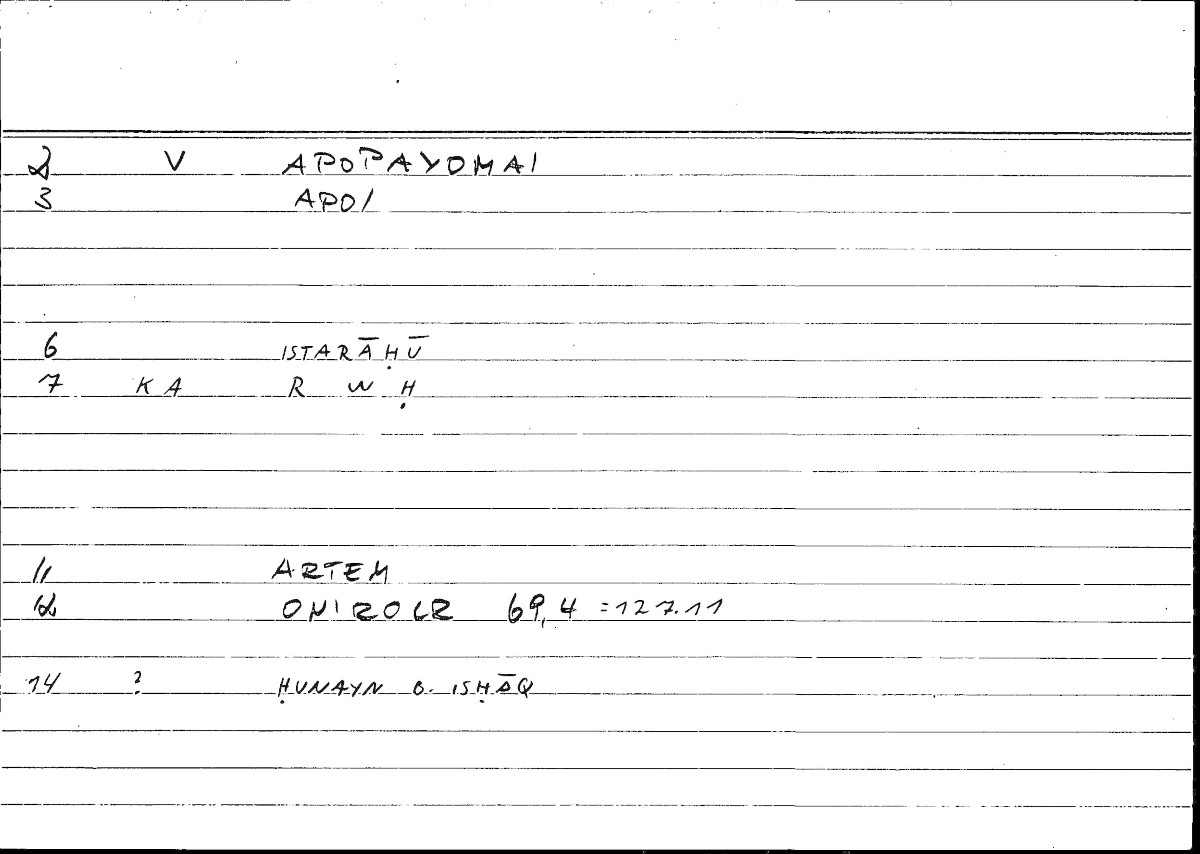 2 V APOPAYOMAI
3 APO/
6 ISTARĀḤŪ
7 KA R W Ḥ
11 ARTEM
12 ONIROCR 69,4 =127.11
14 ? ḤUNAYN B. ISḤĀQ